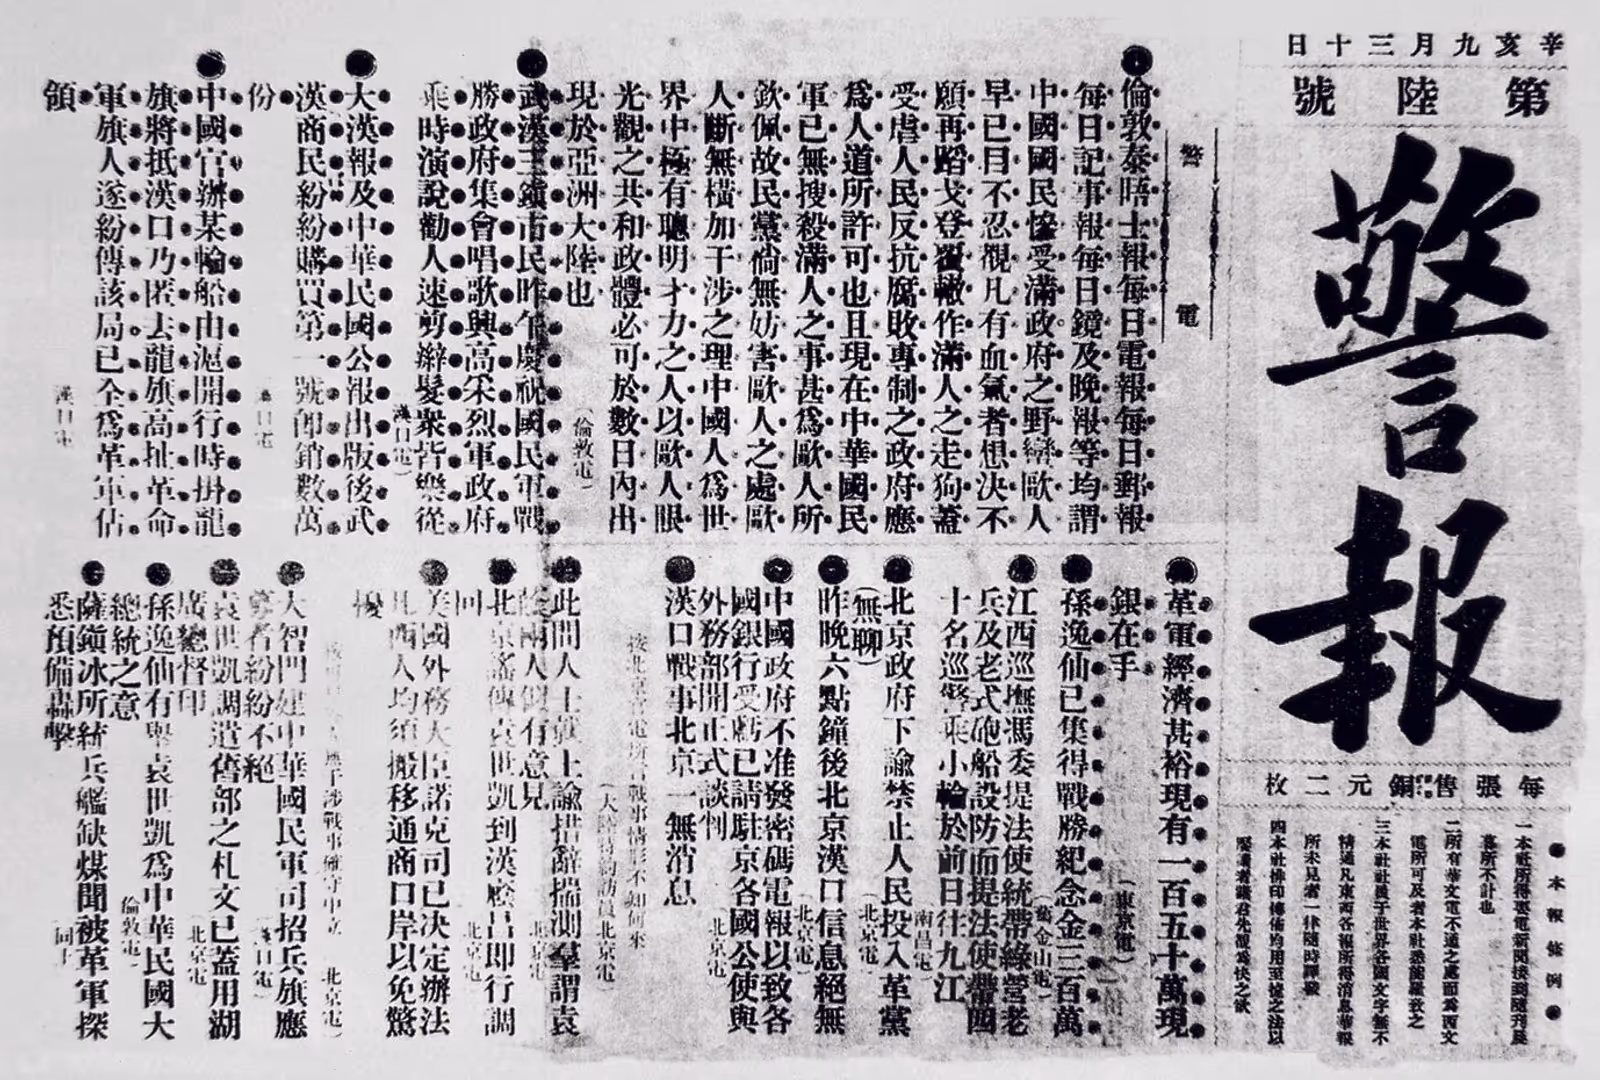 辛亥九月三十日
第陸號
警報
每張售銅元二枚
本報條例
一本社所得要電新聞接到隨刊晨
暮所不計也
二所有華文電不通之處而爲西文
電所可及者本社悉能羅致之
三本社社員于世界各國文字無不
精通凡東西各報所得消息華報
所未見者一律隨時譯載
四本社排印傳佈均用至捷之法以
警電
倫敦泰晤士報每日電報每日郵報
每日記事報每日鏡及晚報等均謂
中國國民慘受滿政府之野蠻歐人
早已目不忍覩凡有血氣者想決不
願再蹈戈登覆轍作滿人之走狗蓋
受虐人民反抗腐敗專制之政府應
爲人道所許可也且現在中華國民
軍已無搜殺滿人之事甚爲歐人所
欽佩故民黨倘無妨害歐人之處歐
人斷無橫加干涉之理中國人爲世
界中極有聰明才力之人以歐人眼
光觀之共和政體必可於數日內出
現於亞洲大陸也
(倫敦電)
武漢三鎮市民昨午慶祝國民軍戰
勝政府集會唱歌興高采烈軍政府
乘時演說勸人速剪辮髮衆皆樂從
(漢口電)
大漢報及中華民國公報出版後武
漢商民紛紛購買第一號卽銷數萬
份
漢口電
中國官辦某輪船由滬開行時掛龍
旗將抵漢口乃匿去龍旗高扯革命
軍旗人遂紛傳該局已全爲革軍佔
領
漢口電
革軍經濟甚裕現有一百五十萬現
銀在手
(東京電)
孫逸仙已集得戰勝紀念金三百萬
(舊金山電)
江西巡撫馮委提法使統帶綠營老
兵及老式砲船設防而提法使帶四
十名巡警乘小輪於前日往九江
南昌電
北京政府下諭禁止人民投入革黨
(無聊)
(北京電
昨晚六點鐘後北京漢口信息絕無
(北京電
中國政府不准發密碼電報以致各
國銀行受虧已請駐京各國公使與
外務部開正式談判
(北京電
漢口戰事北京一無消息
按北京官電所言戰事情形不知何來
(大陸特約訪員北京電)
此間人士就上諭措辭揣測羣謂袁
兩人似有意見
北京電
北京謠傳袁世凱到漢廕昌即行調
回
北京電
美國外務大臣諾克司已決定辦法
凡西人均須搬移通商口岸以免驚
擾
應于涉戰事確守中立
北京電)
大智門建中華國民軍司招兵旗應
募者紛紛不絕
(漢口電)
袁世凱調遣舊部之札文已蓋用湖
廣總督印
(北京電
孫逸仙有舉袁世凱爲中華民國大
總統之意
倫敦電)
薩鎭冰所統兵艦缺煤聞被革軍探
悉預備轟擊
同上